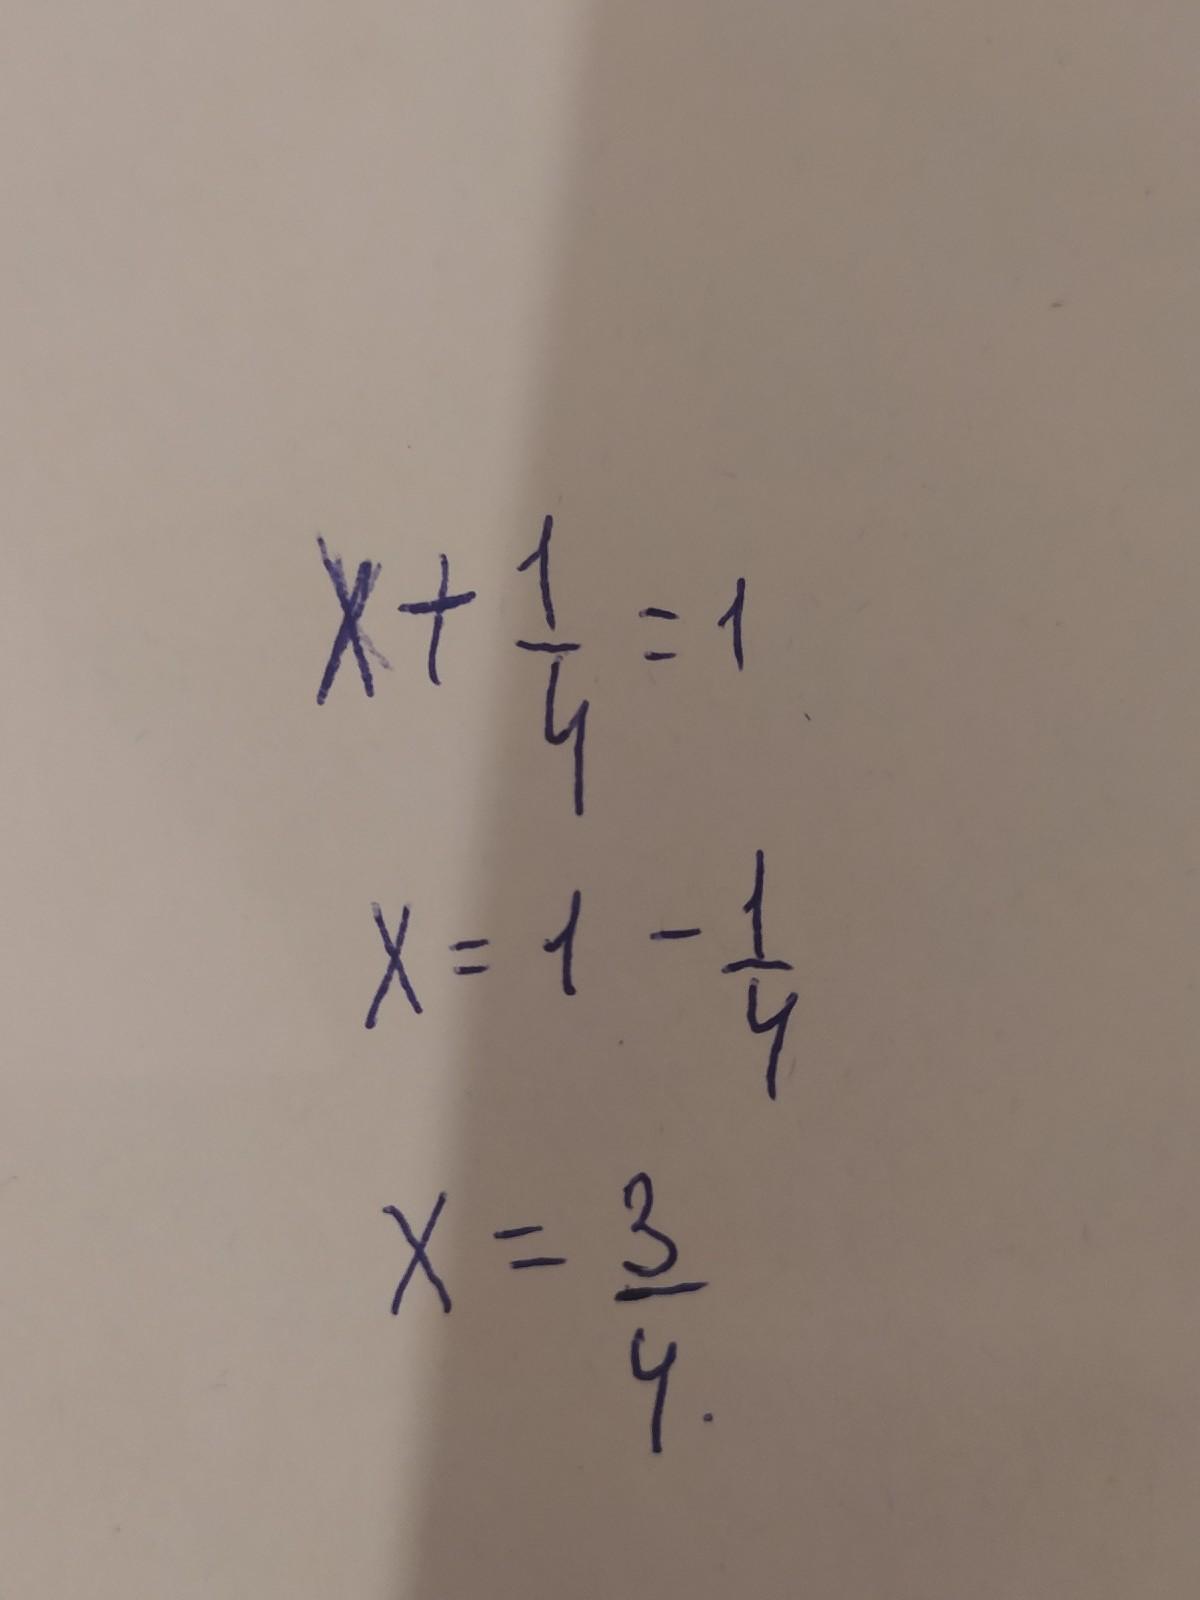 x + 1/4 = 1
x = 1 - 1/4
x = 3/4.